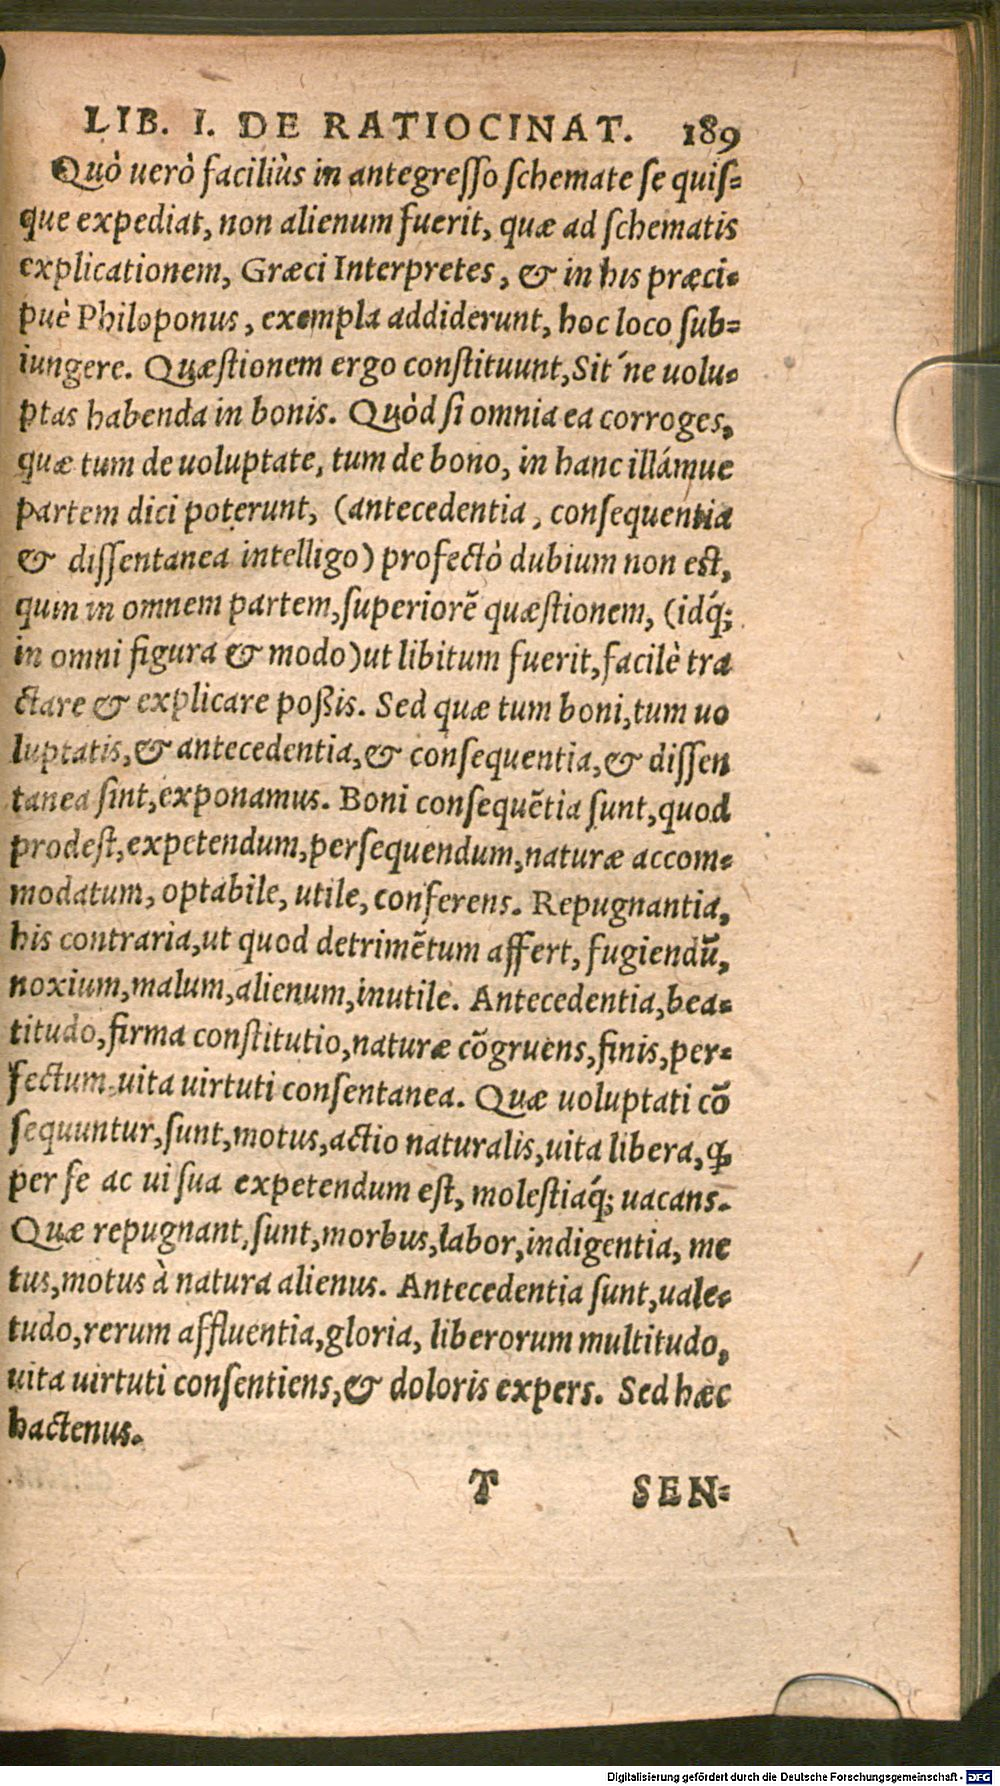 LIB. I. DE RATIOCINAT. 189
Quò uerò faciliùs in antegresso schemate se quis=
que expediat, non alienum fuerit, quæ ad schematis
explicationem, Græci Interpretes, & in his præci-
puè Philoponus, exempla addiderunt, hoc loco sub=
iungere. Quæstionem ergo constituunt, Sit'ne uolu-
ptas habenda in bonis. Quòd si omnia ea corroges,
quæ tum de uoluptate, tum de bono, in hanc illámue
partem dici poterunt, (antecedentia, consequentia
& dissentanea intelligo) profectò dubium non est,
quin in omnem partem, superiorẽ quæstionem, (idq́;
in omni figura & modo) ut libitum fuerit, facilè tra
ctare & explicare poßis. Sed quæ tum boni, tum uo
luptatis, & antecedentia, & consequentia, & dissen
tanea sint, exponamus. Boni consequẽtia sunt, quod
prodest, expetendum, persequendum, naturæ accom-
modatum, optabile, utile, conferens. Repugnantia,
his contraria, ut quod detrimẽtum affert, fugiendũ,
noxium, malum, alienum, inutile. Antecedentia, bea-
titudo, firma constitutio, naturæ cõgruens, finis, per-
fectum, uita uirtuti consentanea. Quæ uoluptati cõ
sequuntur, sunt, motus, actio naturalis, uita libera, ꝙ
per se ac ui sua expetendum est, molestiaq́; uacans.
Quæ repugnant, sunt, morbus, labor, indigentia, me
tus, motus à natura alienus. Antecedentia sunt, uale-
tudo, rerum affluentia, gloria, liberorum multitudo,
uita uirtuti consentiens, & doloris expers. Sed hæc
hactenus.
T SEN=
Digitalisierung gefördert durch die Deutsche Forschungsgemeinschaft - DFG